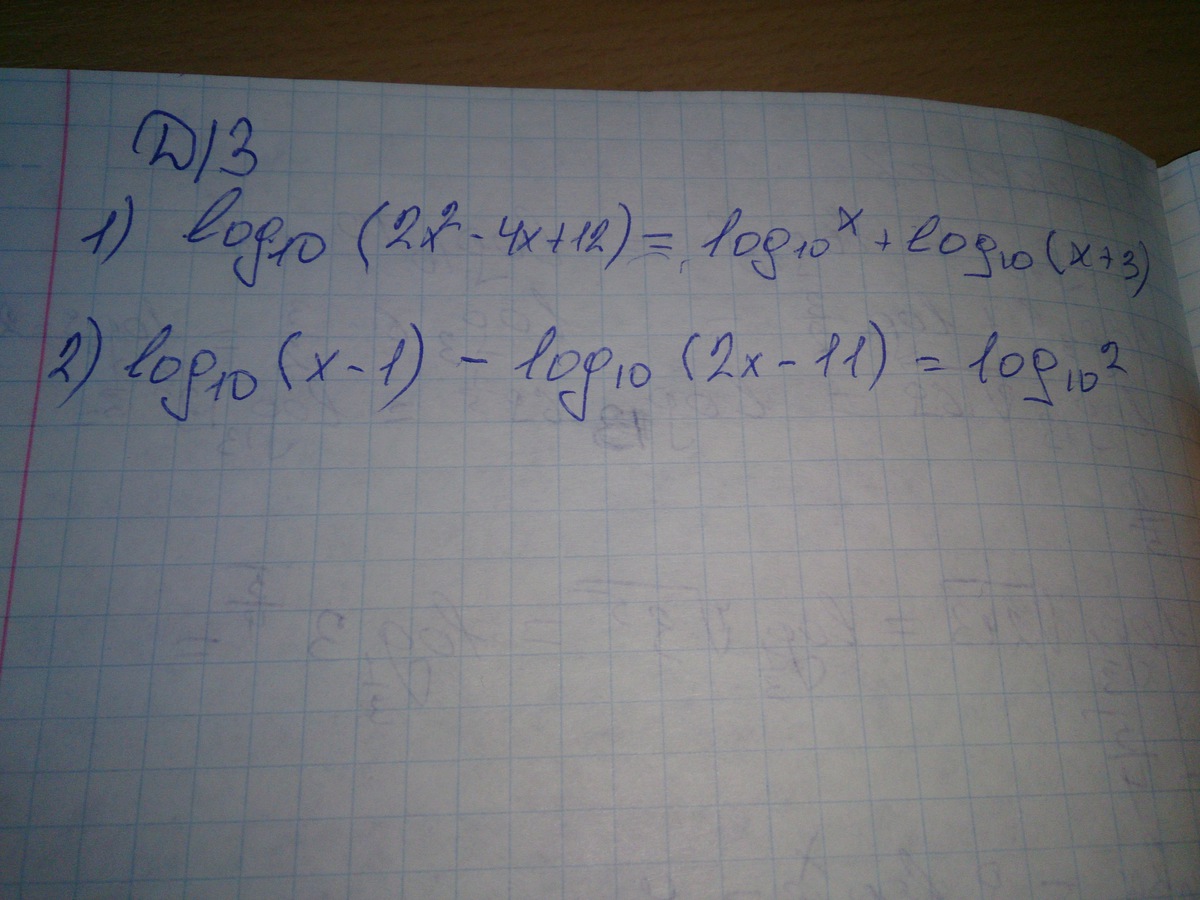 Д/З
1) log₁₀ (2x² - 4x + 12) = log₁₀ x + log₁₀ (x + 3)
2) log₁₀ (x - 1) - log₁₀ (2x - 11) = log₁₀ 2